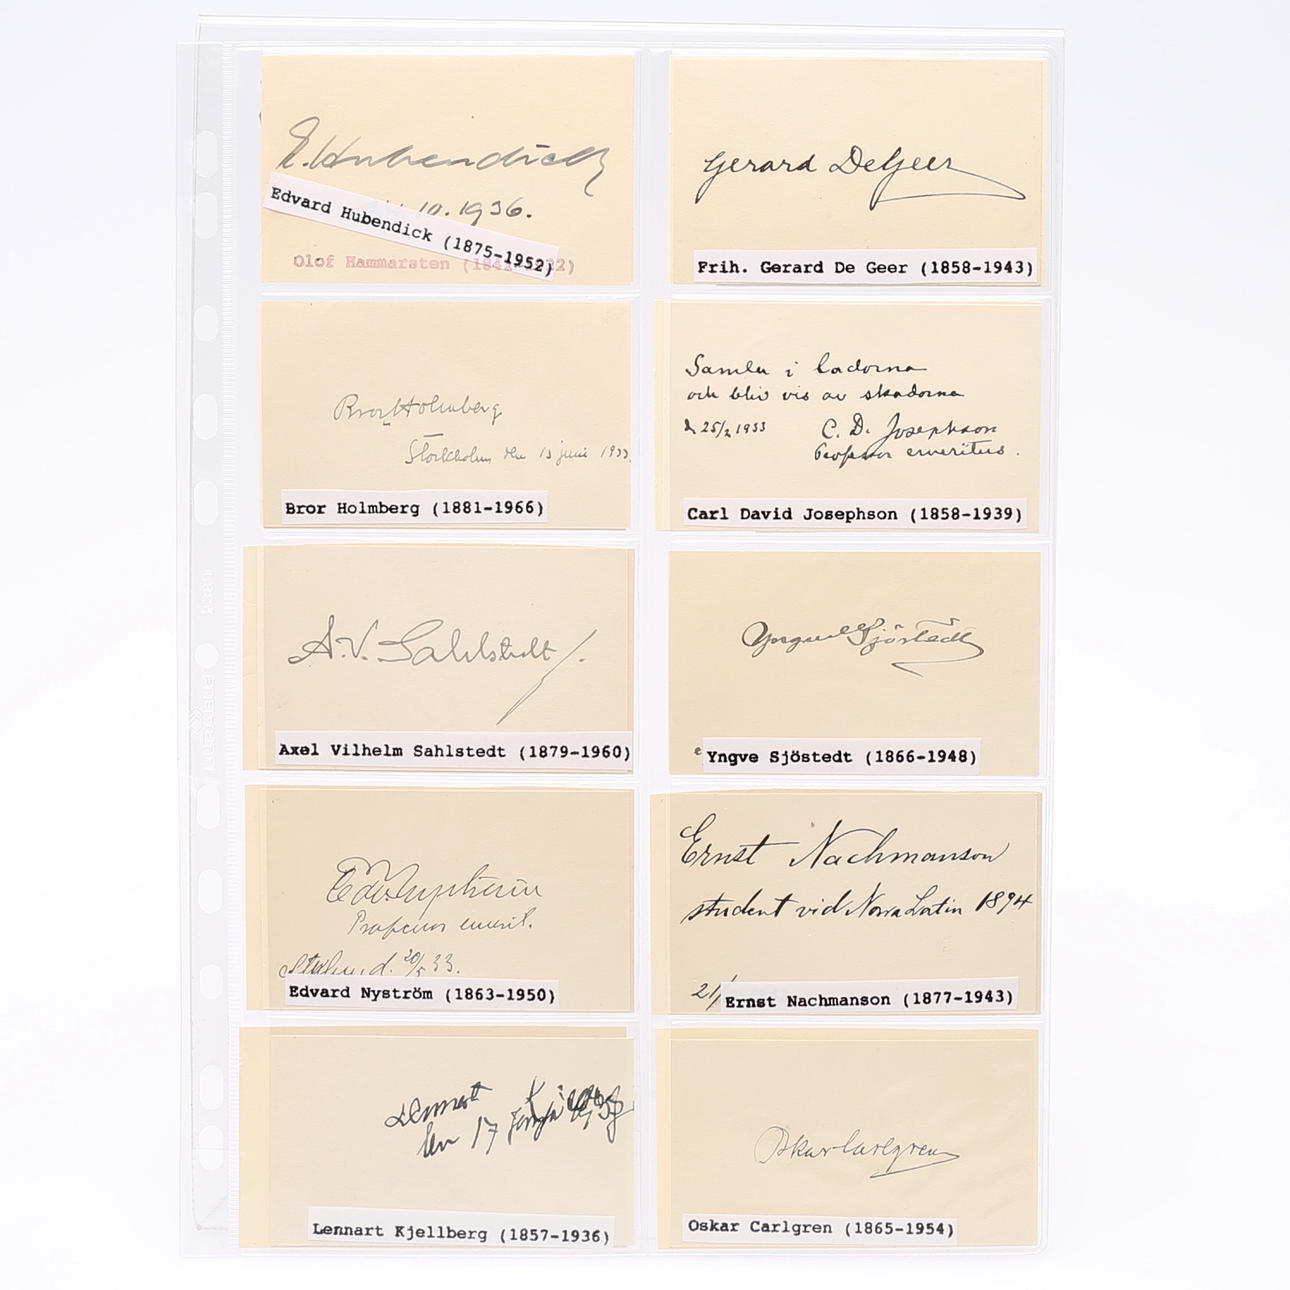 E. Hubendick
10. 1936.
Edvard Hubendick (1875-1952)
Olof Hammarsten
Gerard DeGeer
Frih. Gerard De Geer (1858-1943)
Bror Holmberg
Stockholm den 13 juni 1933
Bror Holmberg (1881-1966)
Samla i ladorna
och bliv vis av skadorna
25/2 1933 C. D. Josephson
Professor emeritus.
Carl David Josephson (1858-1939)
A.V. Sahlstedt
Axel Vilhelm Sahlstedt (1879-1960)
Yngve Sjöstedt
Yngve Sjöstedt (1866-1948)
Edv. Nyström
Professor emerit.
20/5 33.
Edvard Nyström (1863-1950)
Ernst Nachmanson
student vid Norra Latin 1894
21/
Ernst Nachmanson (1877-1943)
Lennart
den 17
Lennart Kjellberg (1857-1936)
Oskar Carlgren
Oskar Carlgren (1865-1954)